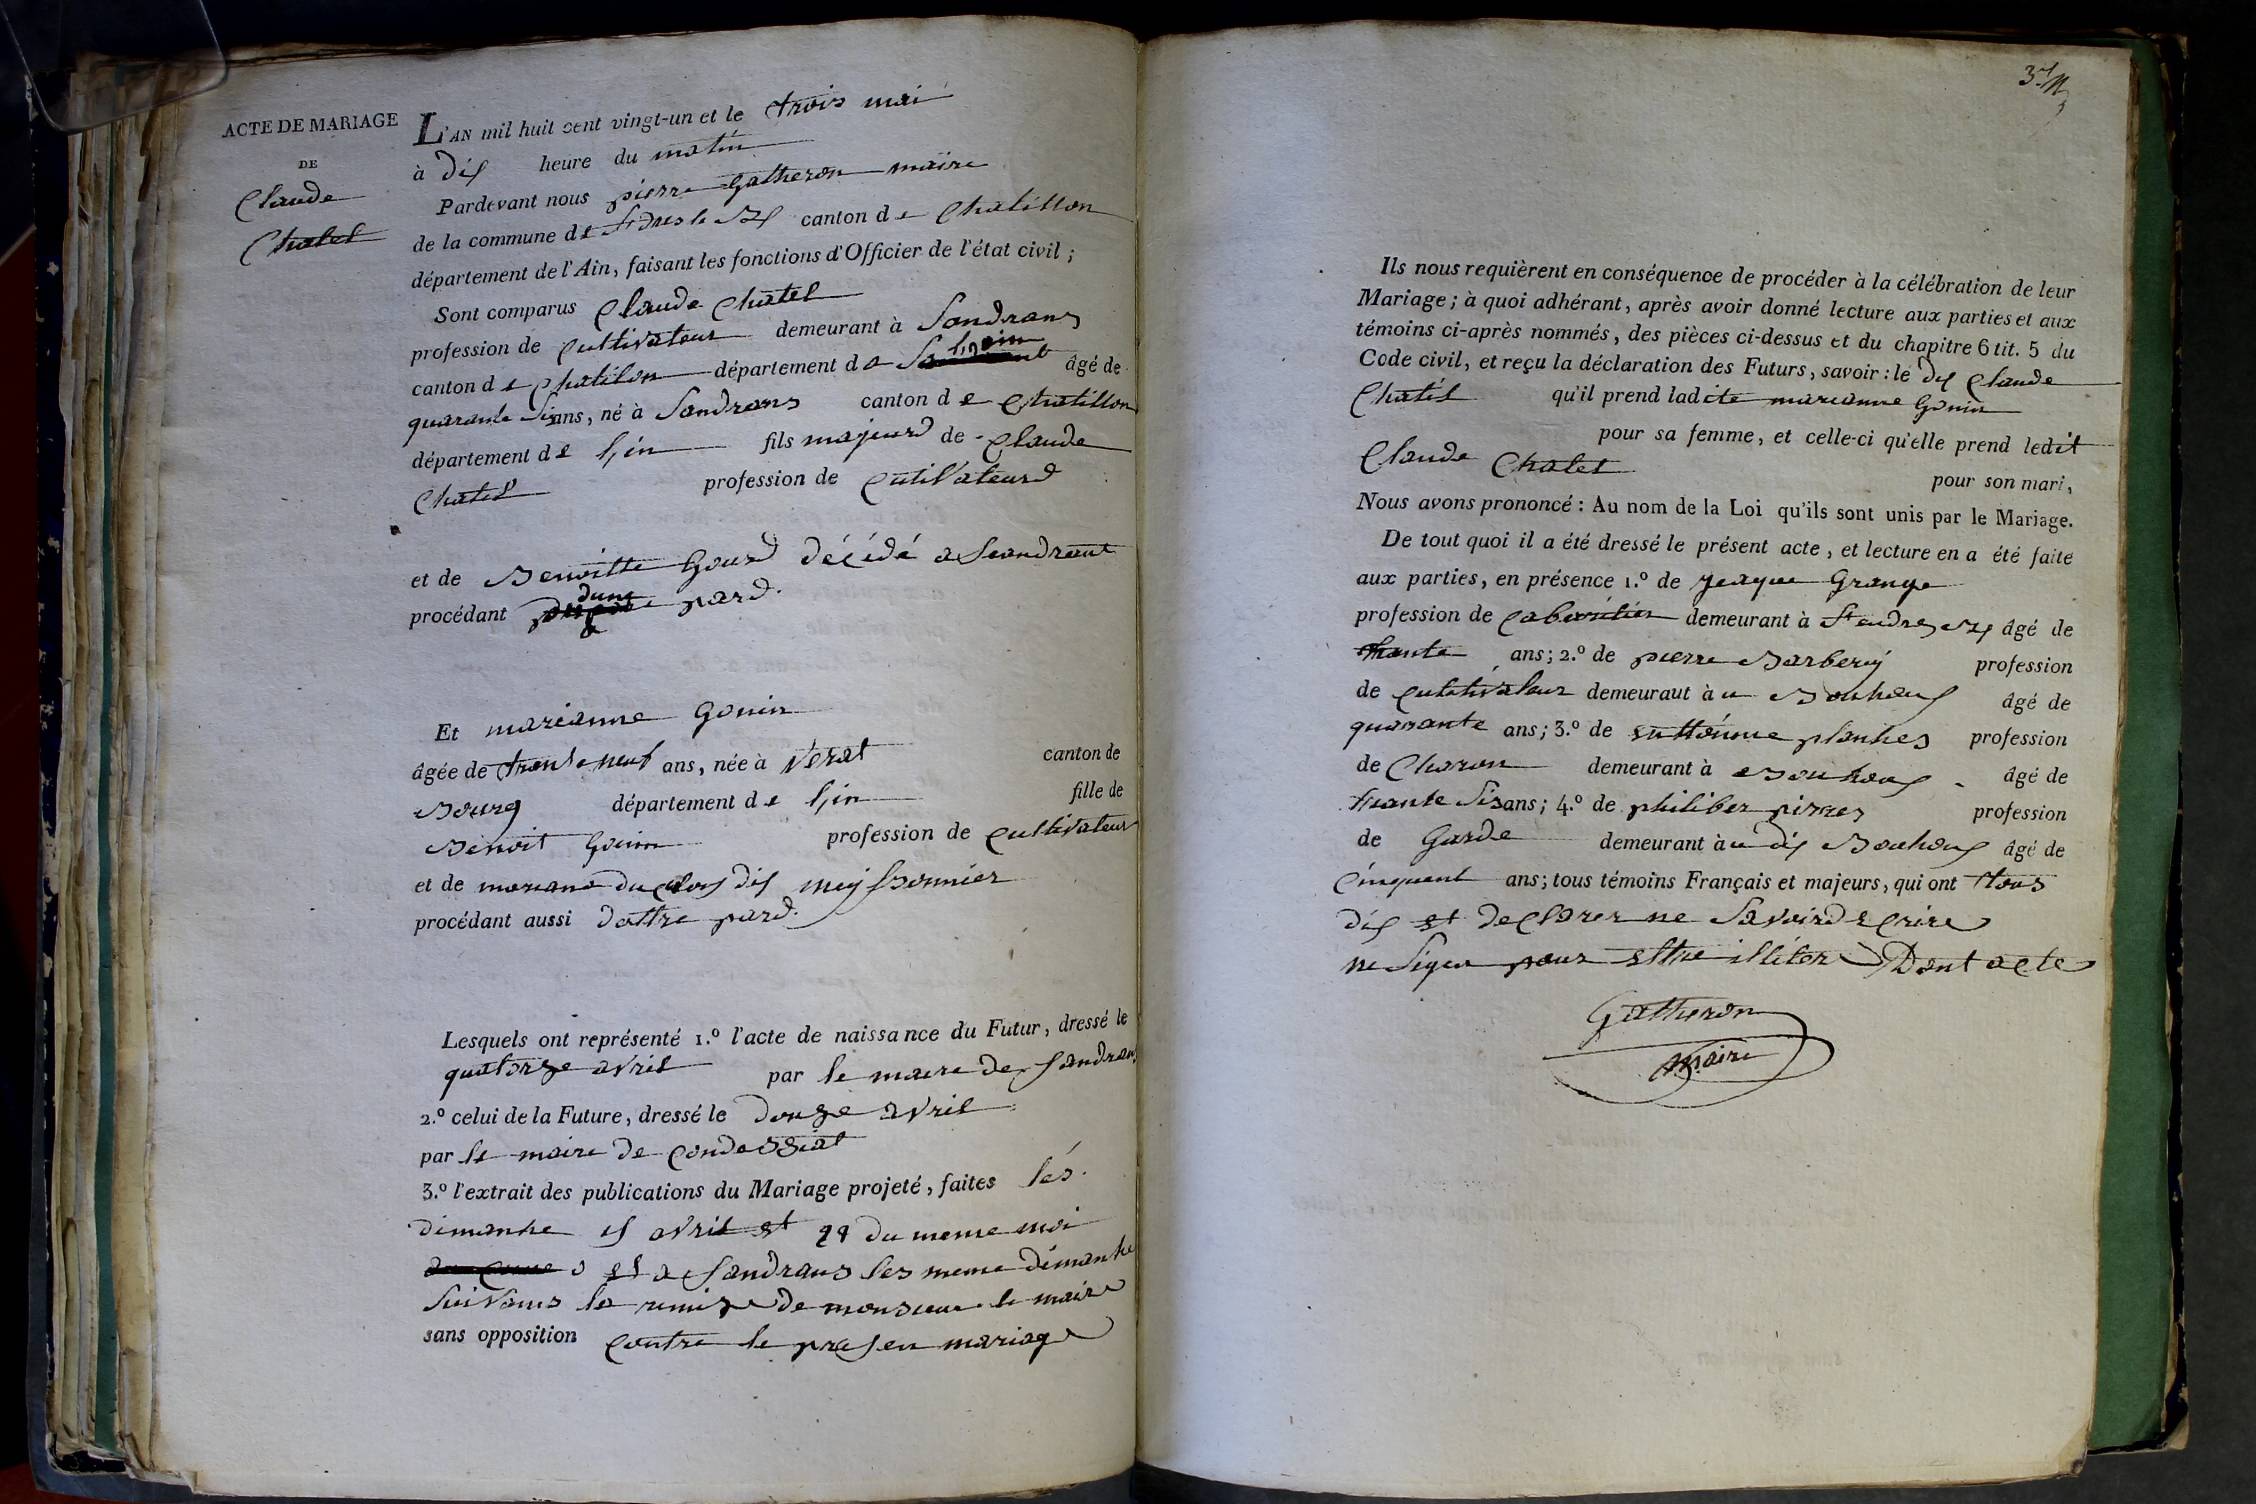 ACTE DE MARIAGE
DE
Claude
Chatel
L'AN mil huit cent vingt-un et le trois mai
à dis heure du matin
Pardevant nous pierre Gatheron maire
de la commune de canton de Chatillon
département de l'Ain, faisant les fonctions d'Officier de l'état civil ;
Sont comparus Claude Chatel
profession de Cultivateur demeurant à Sandrans
canton de Chatilon département de âgé de
quarante Sis ans, né à Sandrans canton de Chatillon
département de lin fils majeurd de Claude
Chatel profession de Cutilvateurd
et de Benoitte Gourd décédé a Seandrant
procédant dune pard.
Et marianne Gonin
âgée de trante neuf ans, née à Verat canton de
Bourg département de lin fille de
Benoit Gonin profession de Cultivateur
et de mariane du dis meyssonnier
procédant aussi dottre pard.
Lesquels ont représenté 1.º l'acte de naissance du Futur, dressé le
quatorze avril par le maire de Sandrans
2.º celui de la Future, dressé le douze avril
par le maire de Condessiat
3.º l'extrait des publications du Mariage projeté, faites lés
dimanhe avril et du meme moi
et a Sandrans les meme dimanhe
Suivans la remise de monsieur le maire
sans opposition Contre le presen mariage
Ils nous requièrent en conséquence de procéder à la célébration de leur
Mariage ; à quoi adhérant, après avoir donné lecture aux parties et aux
témoins ci-après nommés, des pièces ci-dessus et du chapitre 6 tit. 5 du
Code civil, et reçu la déclaration des Futurs, savoir : le dis Claude
Chatel qu'il prend ladite marianne Gonin
pour sa femme, et celle-ci qu'elle prend ledit
Claude Chatel pour son mari,
Nous avons prononcé : Au nom de la Loi qu'ils sont unis par le Mariage.
De tout quoi il a été dressé le présent acte, et lecture en a été faite
aux parties, en présence 1.º de Jeaque Grange
profession de Cabaritier demeurant à St andre âgé de
trante ans ; 2.º de pierre Barbery profession
de Cultivateur demeuraut à u Bouhous âgé de
quarante ans ; 3.º de planhes profession
de Charon demeurant à Bouhous âgé de
trante Sis ans ; 4.º de philiber profession
de Garde demeurant à u dis Bouhous âgé de
Cinquent ans ; tous témoins Français et majeurs, qui ont tous
dis et declarer ne Savoird ecrire
ne Signer pour ettre illiter Dont acte
Gatheron
maire